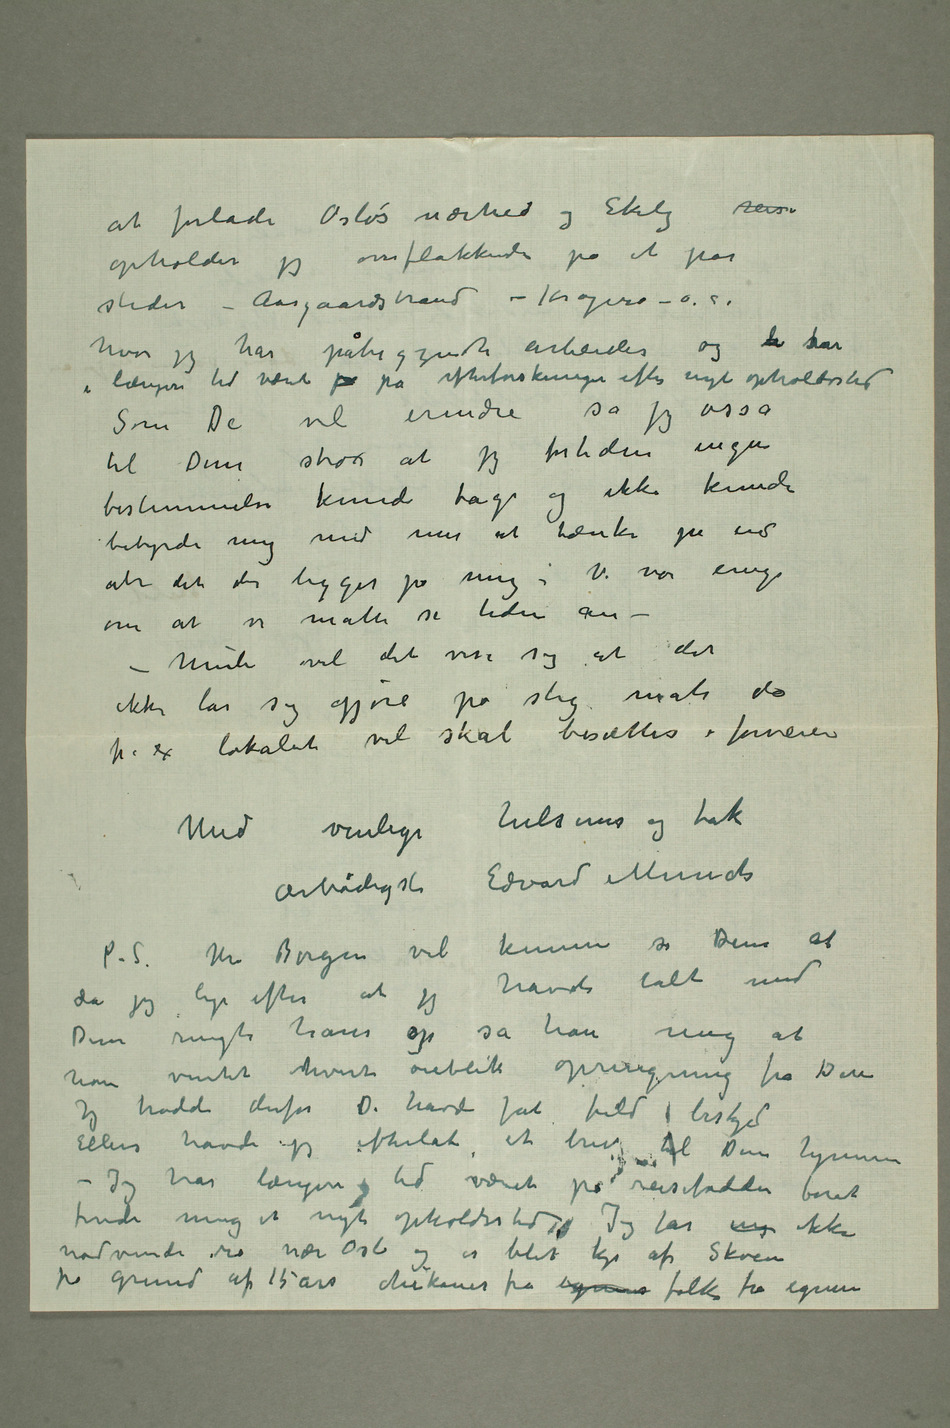 at forlade Oslo's nærhed og Ekely reise
opholder jeg omflakkende på et par
steder – Aasgaardstrand – Kragerø – o.s.
hvor jeg har påbegyndte arbeider og har
i længere tid været på efterforskninger efter nyt opholdssted
Som De vil erindre sa jeg også
til Dem strax at jeg fortiden ingen
bestemmelse kunde tage og ikke kunde
bebyrde mig med mer at tænke på end
alt det der ligger på mig i Vi var enige
om at vi måtte se tiden an –
– Muli vil det vise sig at det
ikke lar sig gjøre på slig måte da
p. ex lokalet vel skal besættes i forveien
Med venlige hilsener og tak
Ærbødigst Edvard Munch
P.S. Hr Borgen vil kunne si Dem at
da jeg lige efter at jeg havde talt med
Dem ringte ham op sa han mig at
han ventet hvert øieblik opringning fra Dem
Jeg trodde derfor De havde fåt fuld besked
Ellers havde jeg efterlat et brev til Dem hjemme
– Jeg har længere tid været på reisefødder for at
finde mig et nyt opholdssted Jeg tar mig ikke
nødvendi ro nær Oslo og er blet kjed af Skøien
på grund af 15 års chikaner fra egnens folk fra egnen